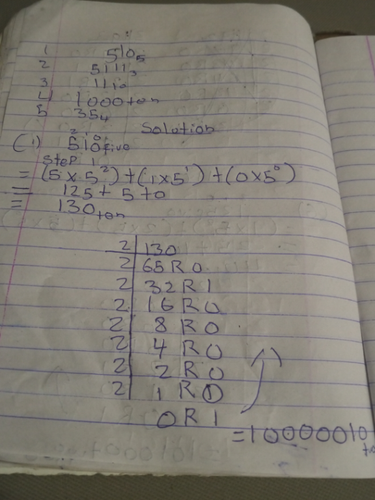 1 510₅
2 5111₅
3 11₁₀
4) 1000ten
5 35₄
Solution
(1) 5²1¹0⁰five
Step 1
= (5 x 5²) + (1 x 5¹) + (0 x 5⁰)
= 125 + 5 + 0
= 130ten
2 | 130
2 | 65 R 0
2 | 32 R 1
2 | 16 R 0
2 | 8 R 0
2 | 4 R 0
2 | 2 R 0
2 | 1 R 0
0 R 1
= 10000010